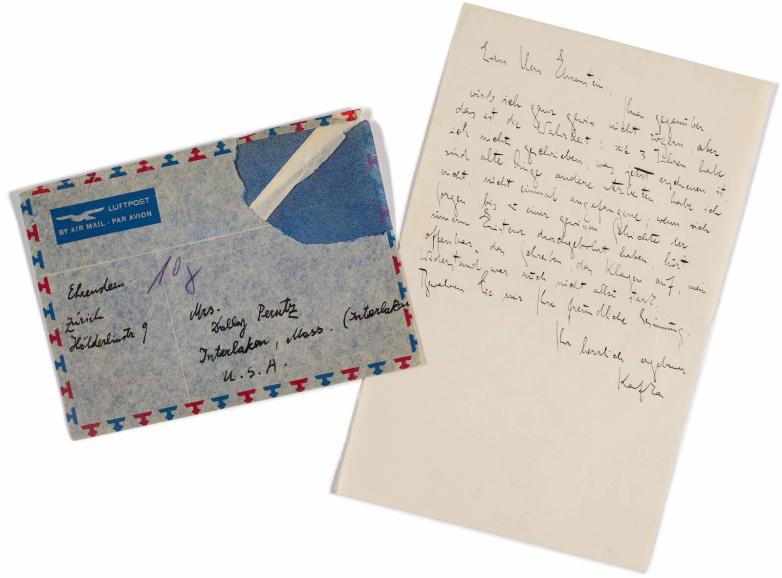 LUFTPOST
BY AIR MAIL · PAR AVION
Ehrenstein
Zürich
Hölderlinstr 9
10 g
Mrs.
Dolly Perutz
Interlaken, Mass. (Interlaken
U. S. A.
Lieber Herr Ehrenstein, Ihnen gegenüber
würde ich ganz gewiss nicht zögern, aber
das ist die Wahrheit: seit 3 Jahren habe
ich nichts geschrieben, was jetzt erschienen ist
sind alte Dinge, andere Arbeiten habe ich
nicht, nicht einmal angefangene; wenn sich
Sorgen bis zu einer gewissen Schichte der
innern Existenz durchgebohrt haben, hört
offenbar das Schreiben und das Klagen auf, mein
Widerstand war auch nicht allzu stark.
Bewahren Sie mir Ihre freundliche Gesinnung.
Ihr herzlich ergebener
Kafka